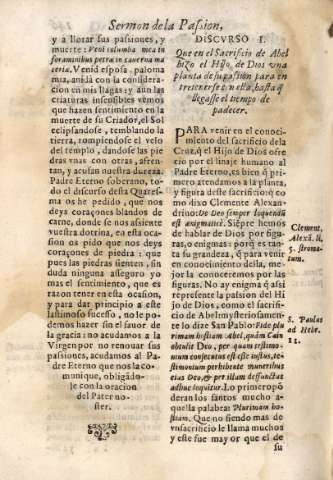 Sermon de la Passion,
y a llorar sus passiones, y
muerte: Veni columba mea in
foraminibus petræ in cauerna ma
ceria. Venid esposa paloma
mia, andá con la consideracion
en mis llagas y aun las
criaturas insensibles vemos
que hazen sentimiento en la
muerte de su Criador, el Sol
eclipsandose, temblando la
tierra, rompiendose el velo
del templo, dandose las pie
dras vnas con otras, afren-
tan, y acusan nuestra dureza.
Padre Eterno soberano, to-
do el discurso desta Quares-
ma os he pedido, que nos
deys coraçones blandos de
carne, donde se nos assiente
vuestra dotrina, en esta oca-
sion os pido que nos deys
coraçones de piedra: que
pues las piedras sienten, sin
duda ninguna asseguro yo
mas el sentimiento, que es
razon tener en esta ocasion,
y para dar principio a este
lastimoso sucesso, no le po-
demos hazer sin el fauor de
la gracia: no acudamos a la
Virgen por no renouar sus
passiones, acudamos al Pa-
dre Eterno que nos la co-
munique, obligado-
le con la oracion
del Pater no-
ster.
DISCVRSO I.
Que en el Sacrificio de Abel
hizo el Hijo de Dios vna
planta de su passion para en
tretenerse en esta, hasta q̃
llegasse el tiempo de
padecer.
PARA venir en el conoci-
miento del sacrificio de
la Cruz, q̃ el Hijo de Dios ofre
cio por el linaje humano al
Padre Eterno, es bien q̃ pri-
mero atendamos a la planta,
y figura deste sacrificio: co
mo dixo Clemente Alexan-
drino: De Deo semper loquendũ
est enigmaticè. Siẽpre hemos
de hablar de Dios por figu-
ras, o enigmas: porq̃ es tan-
ta su grandeza, q̃ para venir
en conocimiento della, me-
jor la conoceremos por las
figuras. No ay enigma q̃ assi
represente la passion del Hi
jo de Dios, como el sacrifi-
cio de Abel: mysteriosamen-
te lo dize San Pablo: Fide plu
rimam hostiam Abel, quàm Cain
obtulit Deo, per quam testimo-
nium consecutus est esse iustus, tes-
timonium perhibente muneribus
eius Deo, & per illam defunctus
adhuc loquitur. Lo primero põ
deran los santos mucho a-
quella palabra: Plurimam ho-
stiam. Que no siendo mas de
vn sacrificio le llama muchos
y este fue mayor que el de
su
Clement.
Alexã. li.
5. stroma-
tum.
S. Paulus
ad Hebr.
11.